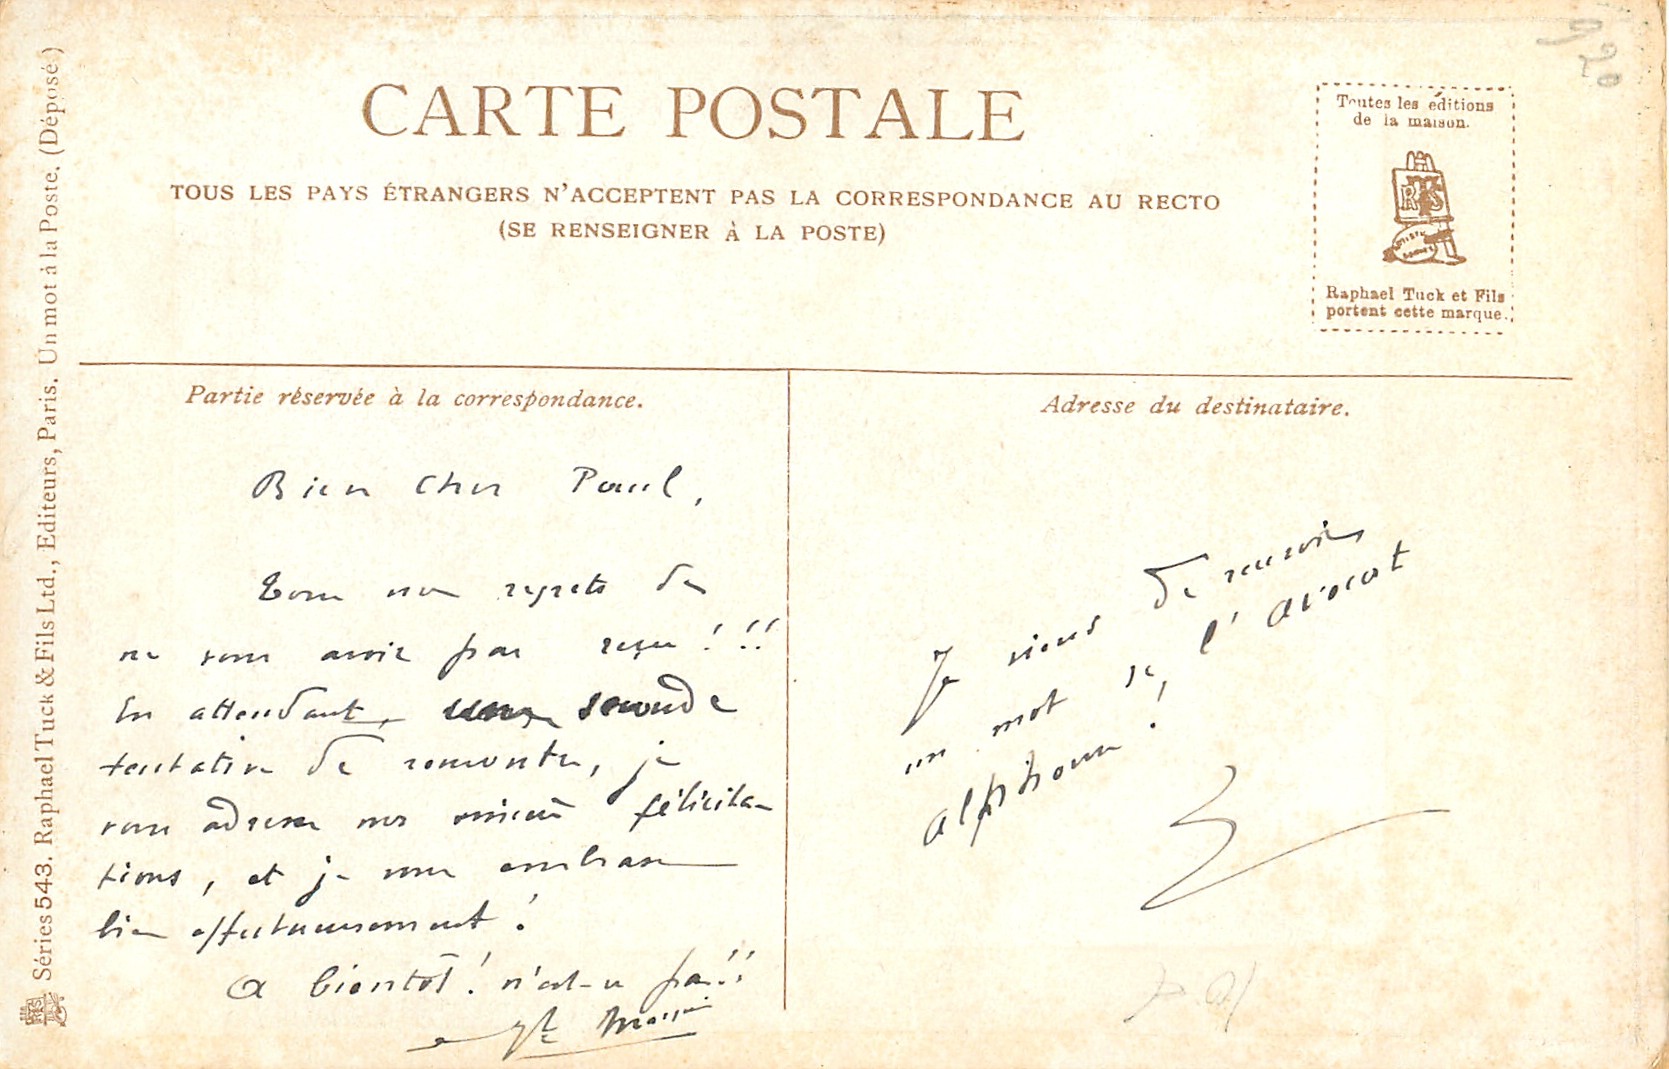 CARTE POSTALE
TOUS LES PAYS ÉTRANGERS N'ACCEPTENT PAS LA CORRESPONDANCE AU RECTO
(SE RENSEIGNER À LA POSTE)
Toutes les éditions
de la maison.
Raphael Tuck et Fils
portent cette marque.
Séries 543. Raphael Tuck & Fils Ltd., Editeurs, Paris. Un mot à la Poste. (Déposé)
Partie réservée à la correspondance.
Bien cher Paul,
Tous nos regrets de
ne vous avoir pas reçu ! !!
En attendant, une seconde
tentative de rencontre, je
vous adresse nos félicita-
tions, et je vous embrasse
bien affectueusement !
A bientôt ! n'est-ce pas !!
Adresse du destinataire.
Je viens de recevoir
un mot de l'avocat
alphonse !
920